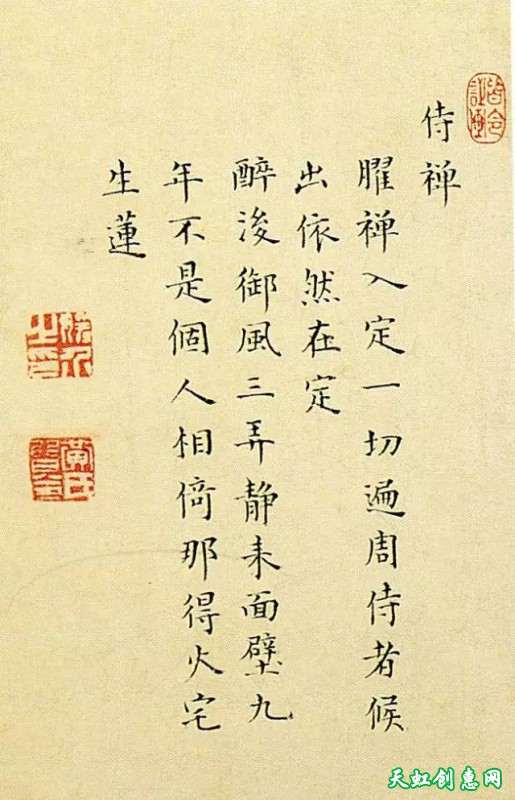 侍禅
曜禅入定一切遍周侍者候
出依然在定
醉後御風三弄静来面壁九
年不是個人相倚那得火宅
生蓮
天虹创惠网